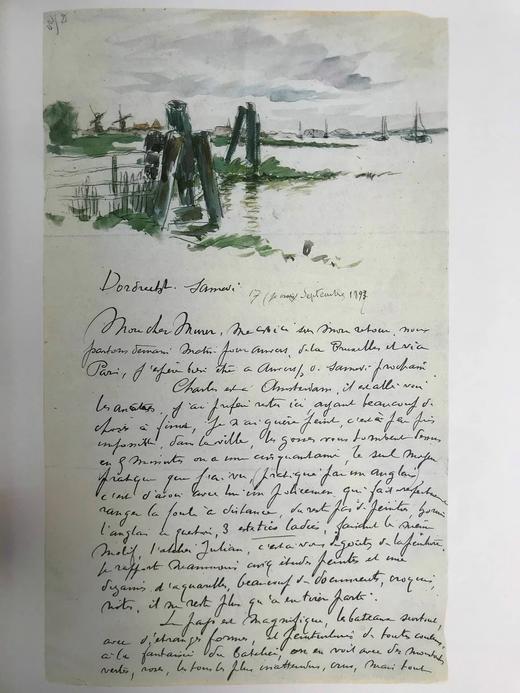 Dordrecht. Samedi 17 Septembre 1892
Mon cher Murer, me voici sur mon retour, nous
partons demain matin pour Anvers, de la Bruxelles et via
Paris, j'espère bien être a Auvers, Samedi prochain.
Charles est a Amsterdam, il est allé voir
les j'ai préféré rester ici ayant beaucoup de
choses à finir, Je n'ai guère peint, c'est à peu près
impossible dans la ville, les gosses vous tombent dessus
en 5 minutes on a une cinquantaine, le seul moyen
pratique que j'ai vu (pratiqué par un anglais)
c'est d'avoir avec lui un policemen, qui fait
ranger la foule a distance, du reste pas de peintres, hormis
l'anglais en question, 3 ladies, faisant le même
motif, l'atelier Julian, c'est a vous dégoûter de la peinture.
Je rapporte néanmoins cinq études peintes et une
dizaine d'aquarelles, beaucoup de documents, croquis,
notes, il ne reste plus qu'a en tirer parti.
Le pays est magnifique, les bateaux surtout,
avec d'étranges formes, et de toute couleur,
a la fantaisie du Batelier on en voit avec des
vertes, roses, les tons les plus inattendus, crus, mais tout